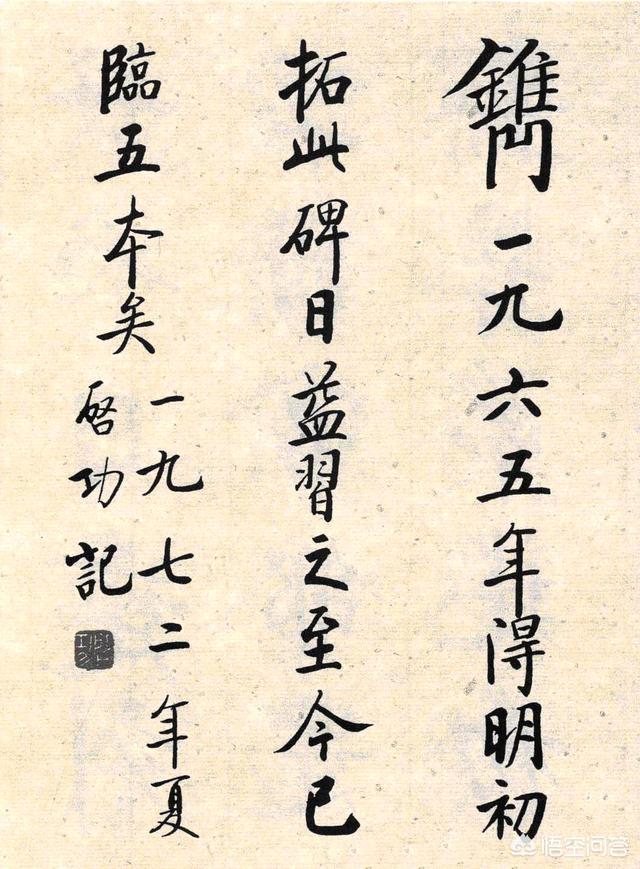 鐫一九六五年得明初
拓此碑日益習之至今已
臨五本矣
一九七二年夏
啓功記
悟空问答